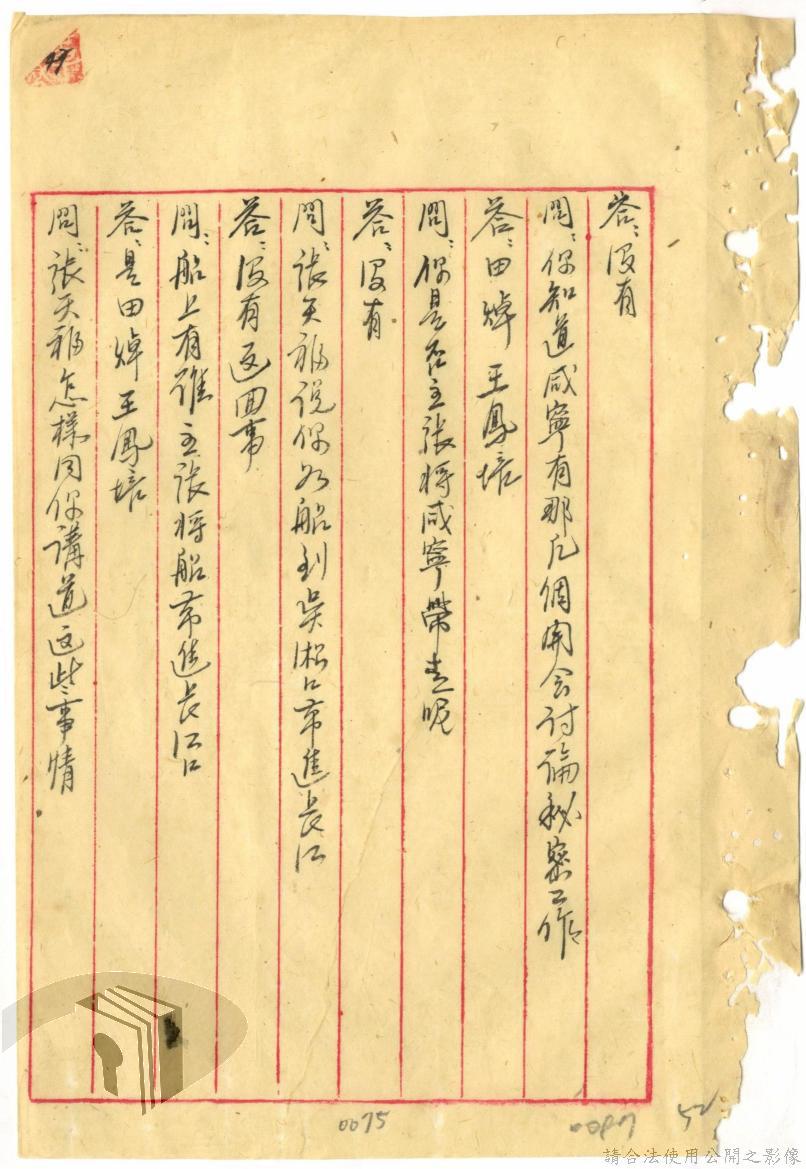 答：没有
問：你知道咸寧有那几個開会討論秘密工作
答：田焯 王鳳培
問：你是否主張將咸寧帶走呢
答：没有
問：張天福説你么船到吳淞口帶進長江
答：没有这回事
問：船上有誰主張將船帶進長江口
答：是田焯王鳳培
問：張天福怎樣同你講道这些事情
0075
52
請合法使用公開之影像